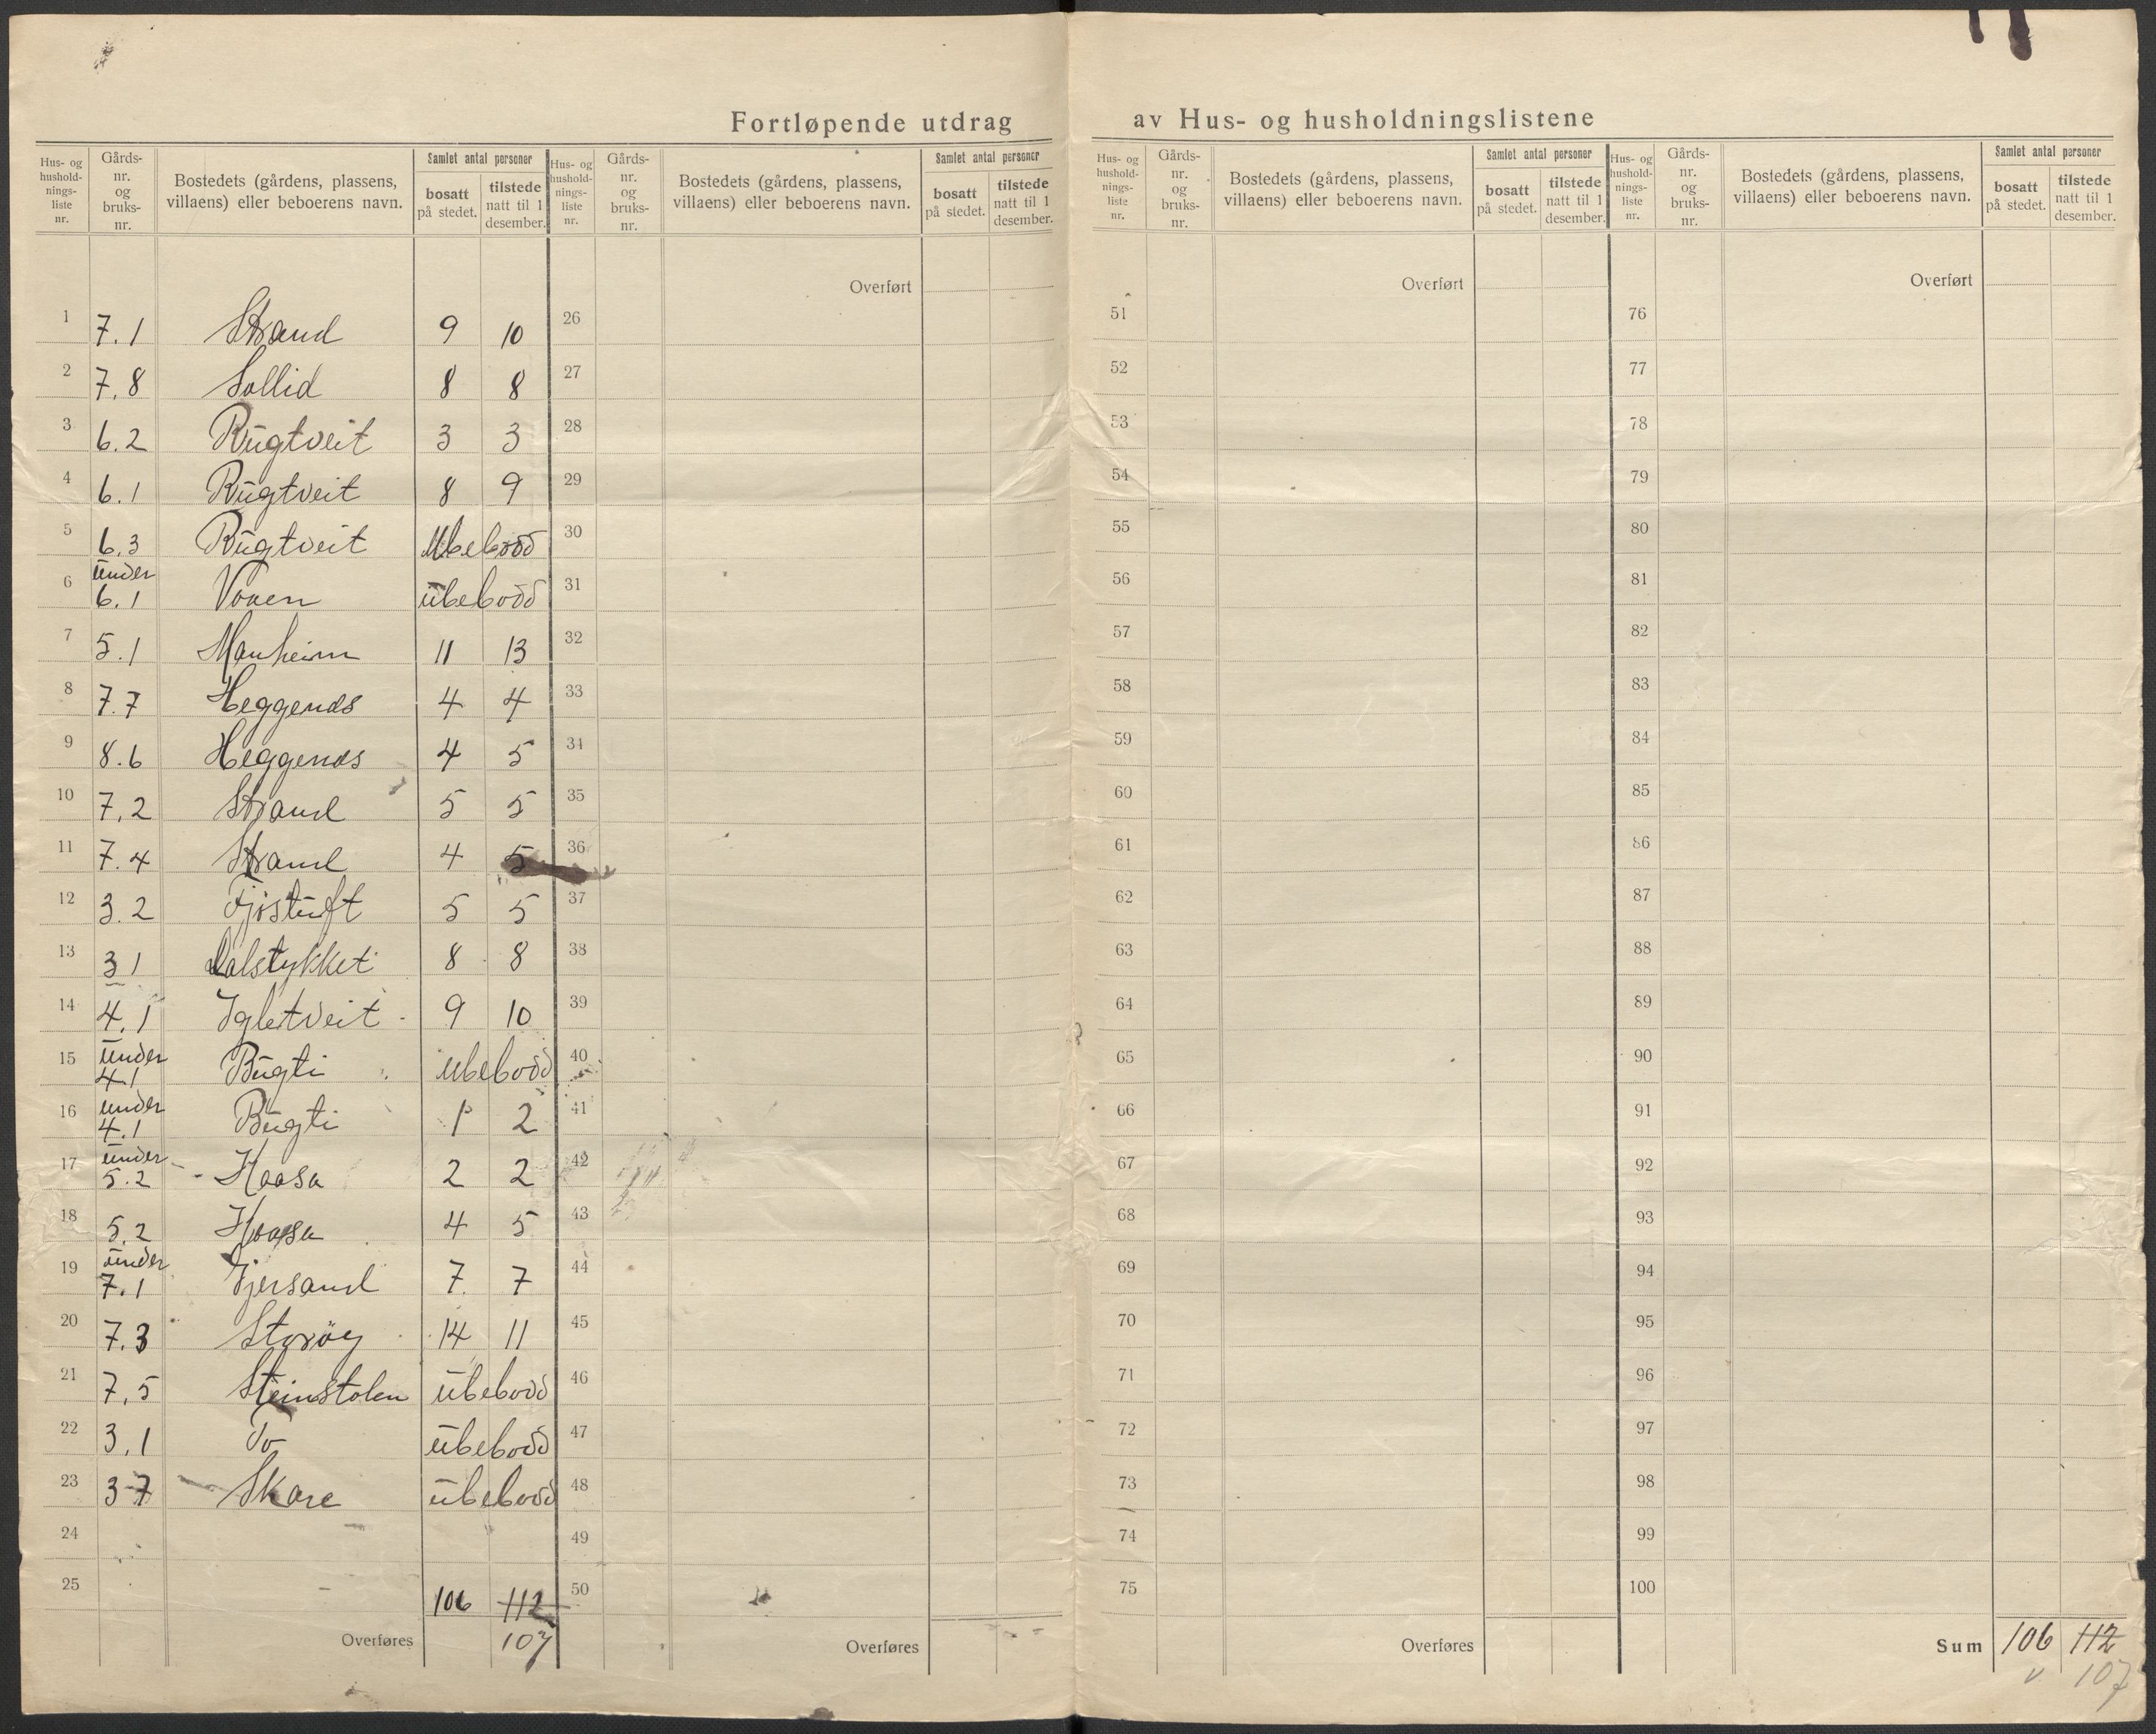 Fortløpende utdrag av Hus- og husholdningslistene
Hus- og husholdnings-liste nr. | Gårds-nr. og bruks-nr. | Bostedets (gårdens, plassens, villaens) eller beboerens navn. | Samlet antal personer | bosatt på stedet. | tilstede natt til 1 desember.
Hus- og husholdnings-liste nr. | Gårds-nr. og bruks-nr. | Bostedets (gårdens, plassens, villaens) eller beboerens navn. | Samlet antal personer | bosatt på stedet. | tilstede natt til 1 desember.
Hus- og husholdnings-liste nr. | Gårds-nr. og bruks-nr. | Bostedets (gårdens, plassens, villaens) eller beboerens navn. | Samlet antal personer | bosatt på stedet. | tilstede natt til 1 desember.
Hus- og husholdnings-liste nr. | Gårds-nr. og bruks-nr. | Bostedets (gårdens, plassens, villaens) eller beboerens navn. | Samlet antal personer | bosatt på stedet. | tilstede natt til 1 desember.
1 7.1 Strand 9 10
2 7.8 Sollid 8 8
3 6.2 Rugtveit 3 3
4 6.1 Rugtveit 8 9
5 6.3 Rugtveit Ubebodd
6 under 6.1 ubebodd
7 5.1 Manheim 11 13
8 7.7 Heggenes 4 4
9 8.6 Heggenes 4 5
10 7.2 Strand 5 5
11 7.4 Strand 4 5
12 3.2 Fjøstuft 5 5
13 3 1 Dalstykket 8 8
14 4.1 Igletveit 9 10
15 under 4.1 Bugti ubebodd
16 under 4.1 Bugti 1 2
17 under 5.2 Haasa 2 2
18 5.2 Haasa 4 5
19 under 7.1 7 7
20 7.3 Storöy 14 11
21 7.5 Steinstolen ubebodd
22 3.1 To ubebodd
23 3-7 Skare ubebodd
24
25 106 112
Overføres 107
Overført
26
27
28
29
30
31
32
33
34
35
36
37
38
39
40
41
42
43
44
45
46
47
48
49
50
Overføres
Overført
51
52
53
54
55
56
57
58
59
60
61
62
63
64
65
66
67
68
69
70
71
72
73
74
75
Overføres
Overført
76
77
78
79
80
81
82
83
84
85
86
87
88
89
90
91
92
93
94
95
96
97
98
99
100
Sum 106 112
v 107